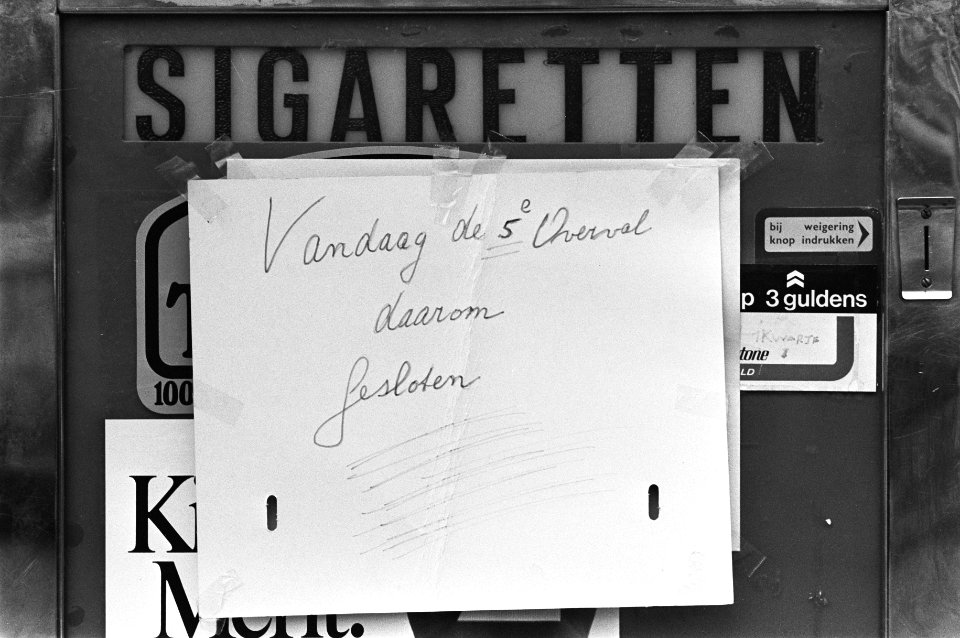 SIGARETTEN
Vandaag de 5e Overval
daarom
Gesloten
bij weigering
knop indrukken
p 3 guldens
1 KWARTJE
tone
LD
100
K
Ment.